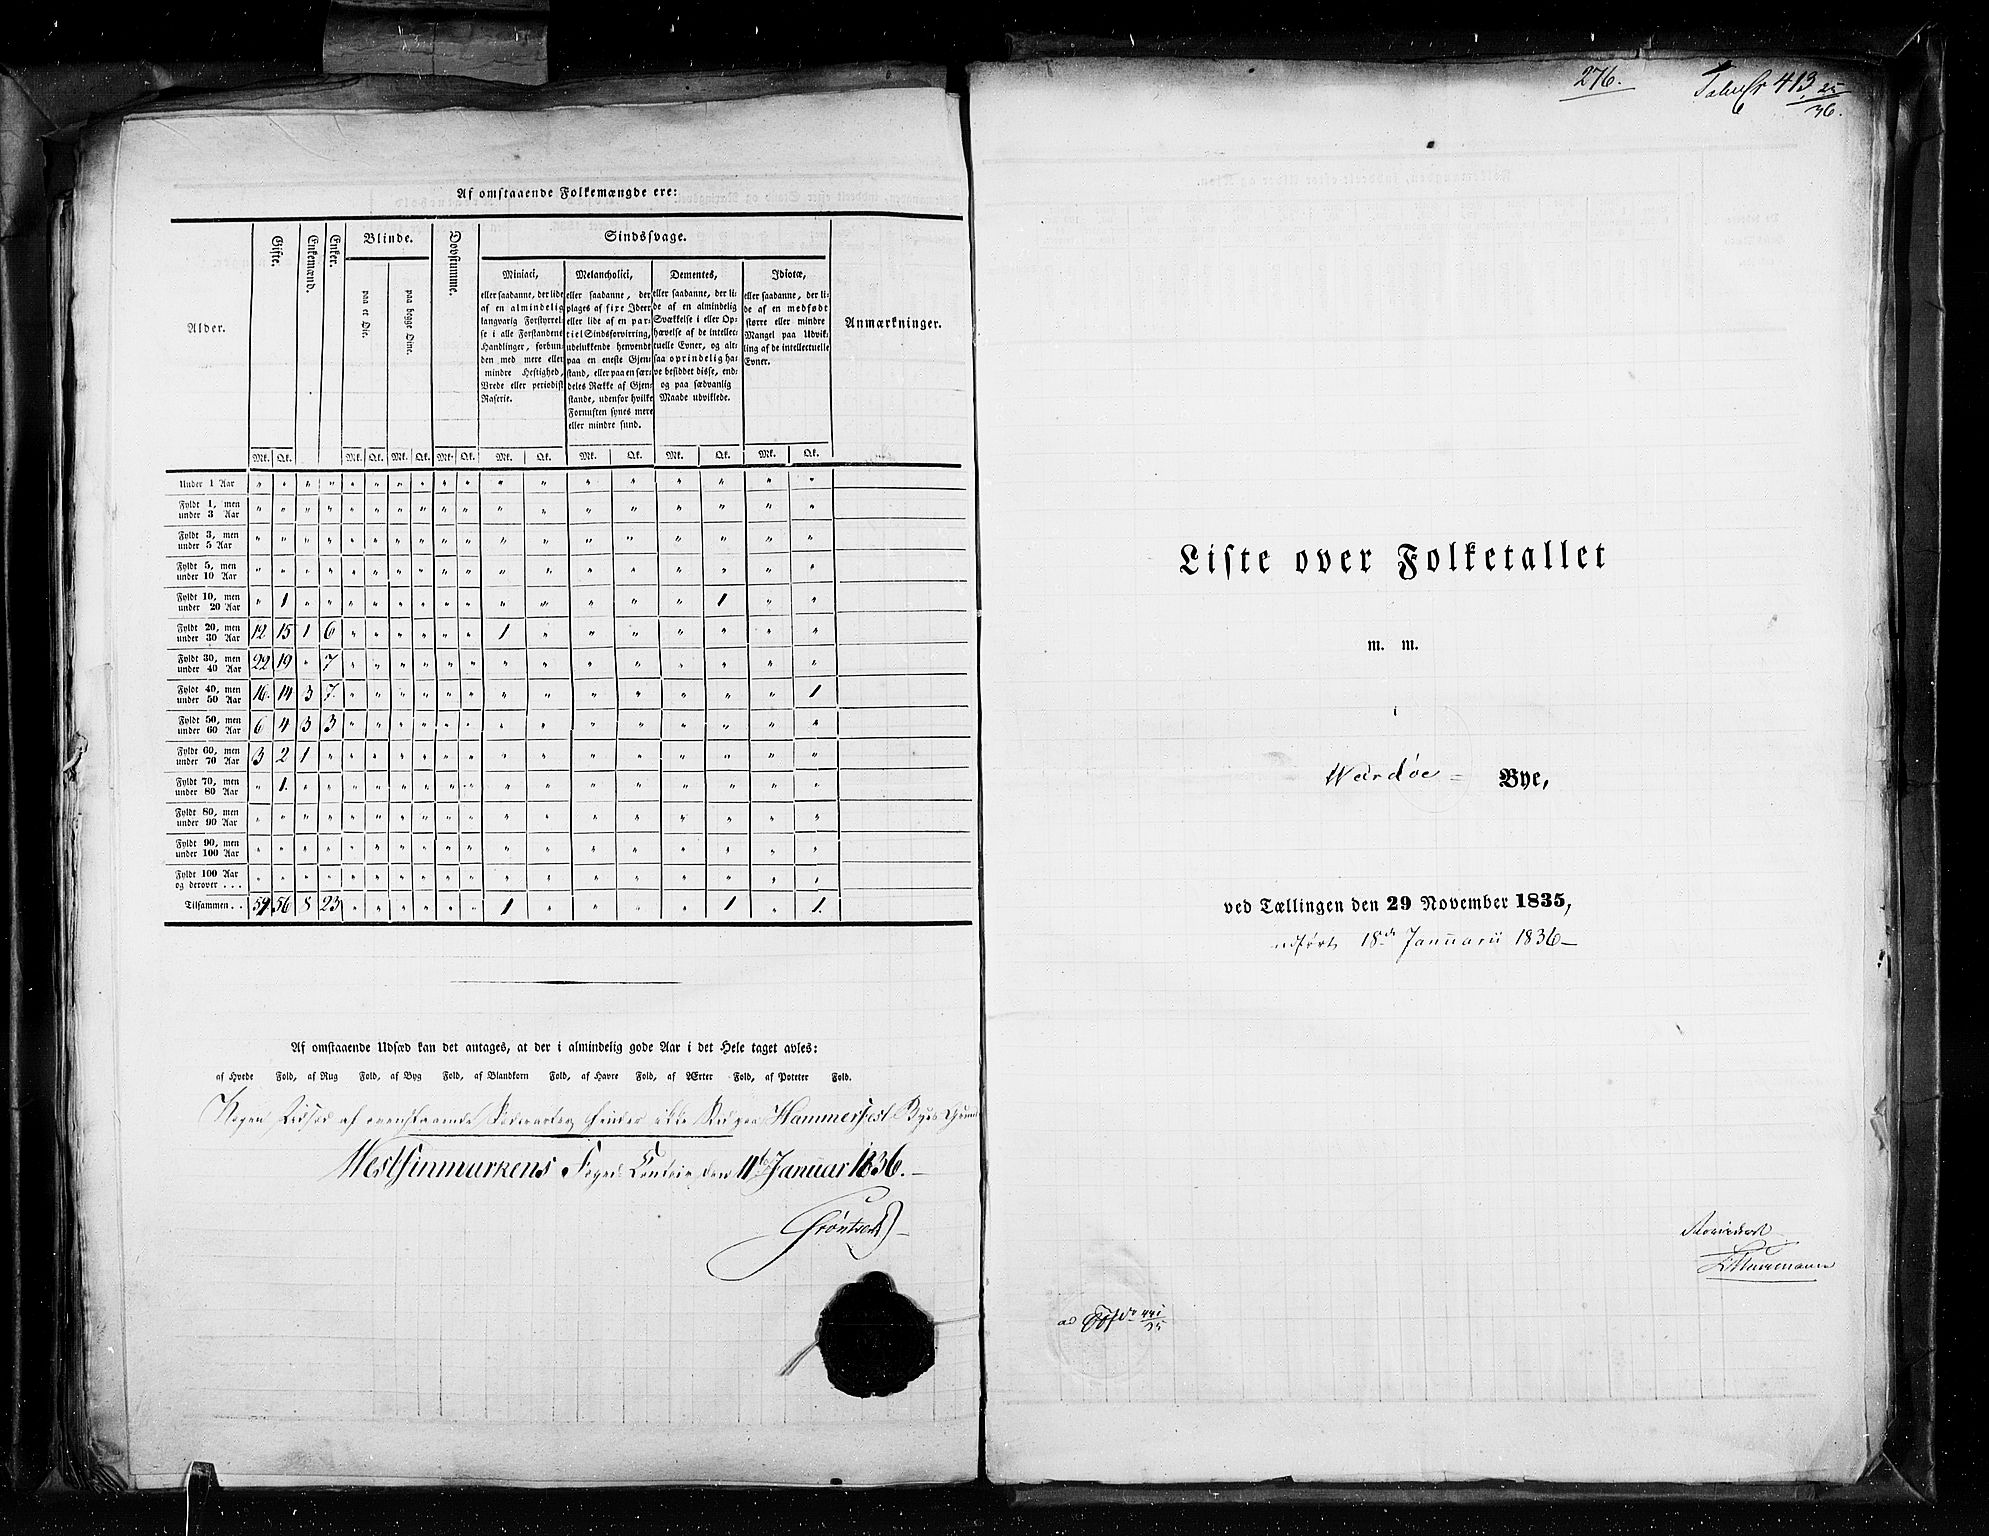 Af omstaaende Folkemængde ere:
Alder.
Gifte.
Enkemænd.
Enker.
Blinde.
paa et Øie.
paa begge Øine.
Døvstumme.
Sindssvage.
Miniaci,
eller saadanne, der lide
af en almindelig
langvarig Forstyrrel-
se i alle Forstandens
Handlinger, forbun-
den med mere eller
mindre Heftighed,
Vrede eller periodisk
Raserie.
Melancholici,
eller saadanne, der
plages af fixe Ideer
eller lide af en par-
tiel Sindsforvirring,
udelukkende henvendt
paa en eneste Gjen-
stand, eller paa en sær-
deles Række af Gjen-
stande, udenfor hvilke
Fornuften synes mere
eller mindre sund.
Dementes,
eller saadanne, der li-
de af en almindelig
Svækkelse i eller Op-
hævelse af de intellec-
tuelle Evner, og alt-
saa oprindelig ha-
ve besiddet disse, end-
og paa sædvanlig
Maade udviklede.
Idiotæ,
eller saadanne, der li-
de af en medfødt
større eller mindre
Mangel paa Udvik-
ling af de intellectuelle
Evner.
Anmærkninger.
Mk. Qk. Mk. Qk. Mk. Qk. Mk. Qk. Mk. Qk. Mk. Qk. Mk. Qk. Mk. Qk.
Under 1 Aar " " " " " " " " " " " " " " " " " "
Fyldt 1, men
under 3 Aar " " " " " " " " " " " " " " " " " "
Fyldt 3, men
under 5 Aar " " " " " " " " " " " " " " " " " "
Fyldt 5, men
under 10 Aar " " " " " " " " " " " " " " " " " "
Fyldt 10, men
under 20 Aar " 1 " " " " " " " " " " " " " 1 " "
Fyldt 20, men
under 30 Aar 12 15 1 6 " " " " " " 1 " " " " " " "
Fyldt 30, men
under 40 Aar 22 19 " 7 " " " " " " " " " " " " " "
Fyldt 40, men
under 50 Aar 16 14 3 7 " " " " " " " " " " " " " 1
Fyldt 50, men
under 60 Aar 6 4 3 3 " " " " " " " " " " " " " "
Fyldt 60, men
under 70 Aar 3 2 1 " " " " " " " " " " " " " " "
Fyldt 70, men
under 80 Aar " 1 " " " " " " " " " " " " " " " "
Fyldt 80, men
under 90 Aar " " " " " " " " " " " " " " " " " "
Fyldt 90, men
under 100 Aar " " " " " " " " " " " " " " " " " "
Fyldt 100 Aar
og derover . . . " " " " " " " " " " " " " " " " " "
Tilsammen . . 59 56 8 23 " " " " " " 1 " " " " 1 " 1.
Af omstaaende Udsæd kan det antages, at der i almindelig gode Aar i det Hele taget avles:
af Hvede Fold, af Rug Fold, af Byg Fold, af Blandkorn Fold, af Havre Fold, af Ærter Fold, af Poteter Fold.
Nogen Udsæd af ovenstaaende Sædearter finder ikke Sted paa Hammerfest Byes Grund
Westfinmarkens Foged Contoir den 11te Januar 1836.
276.
413
36.
Liste over Folketallet
m. m.
i
Wardøe Bye,
ved Tællingen den 29 November 1835,
udført 18de Januarii 1836
Revideret
ad 441
35